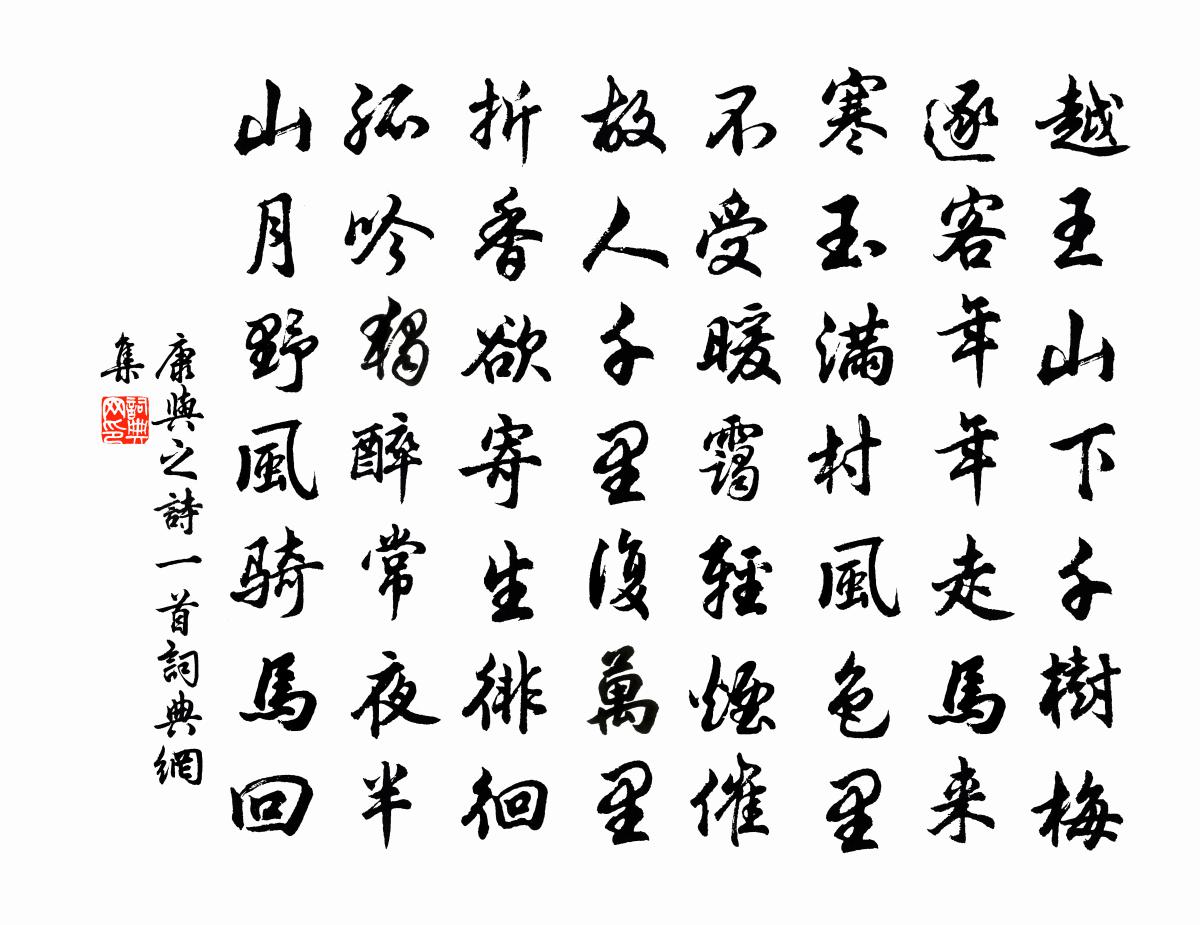 越王山下千樹梅
逐客年年走馬来
寒玉滿村風色里
不受暖靄輕煙催
故人千里復萬里
折香欲寄生徘徊
孤吟獨醉常夜半
山月野風騎馬回
康與之詩一首詞典網
集
詞典网印